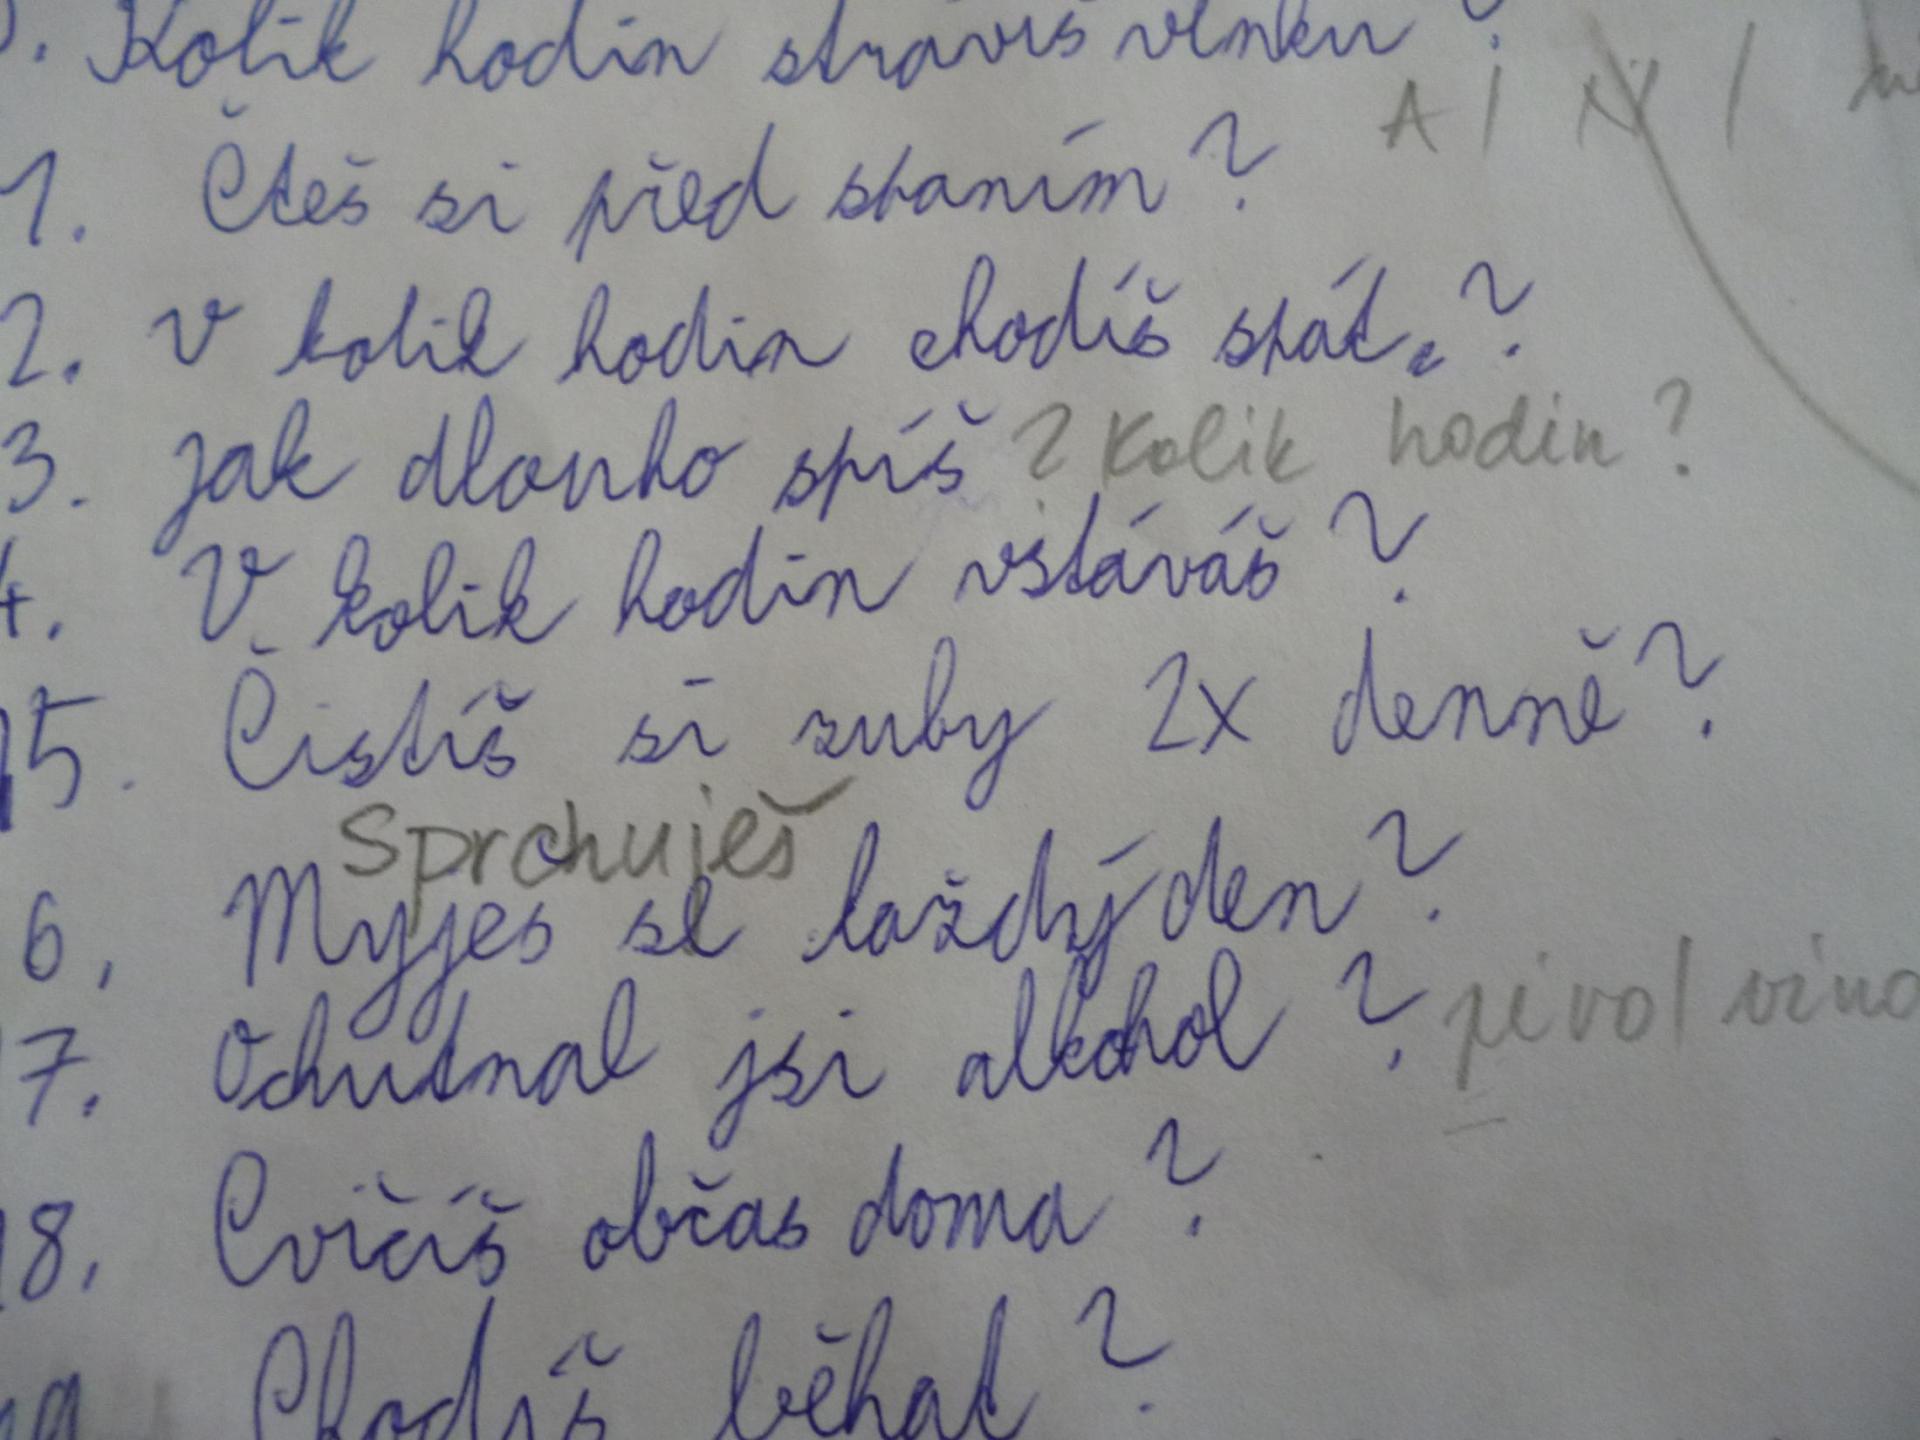 . Kolik hodin strávíš venku?
1. Čteš si před spaním? A / N /
2. V kolik hodin chodíš spát.?
3. Jak dlouho spíš? Kolik hodin?
4. V kolik hodin vstáváš?
15. Čistíš si zuby 2x denně?
Sprchuješ
6, Myjes se každý den?
17. Ochutnal jsi alkohol? pivo / víno
18, Cvičíš občas doma?
Chodíš běhat?